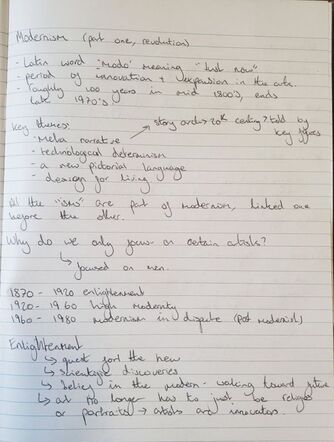 Modernism (part one, revolution)
- Latin word 'Modo' meaning "Just now"
- period of innovation + expansion in the arts
- roughly 100 years in mid 1800's, ends
late 1970's
Key themes:
- Meta narrative → story under 20th century? told by
key figures
- technological determinism
- a new pictorial language
- design for living
All the "isms" are part of modernism, linked one
before the other.
Why do we only focus on certain artists?
↳ focused on men.
1870 - 1920 enlightenment
1920 - 1960 high modernity
1960 - 1980 modernism in dispute (Post Modernist)
Enlightenment
↳ quest for the new
↳ scientific discoveries
↳ belief in the modern - walking toward future
↳ art no longer has to just be religious
or portraits → artists are innovators.